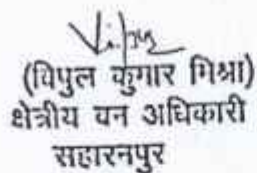 (विपुल कुमार मिश्रा)
क्षेत्रीय वन अधिकारी
सहारनपुर